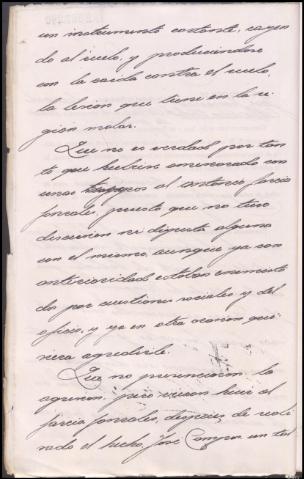 un instrumento cortante, cayen
do al suelo, y produciendose
con la caida contra el suelo,
la lesion que tiene en la re
gion malar.
Que no es verdad por tan
to que hubiera amenazado con
unas al Garcia
Gonzalez, puesto que no tuvo
discusion ni disputa alguna
con el mismo, aunque ya con
anterioridad estaban enemista
dos por cuestiones sociales y del
oficio, y ya en otra ocasion qui
siera agredirle.
Que no presenciaron la
agresion, pero vieron huir al
Garcia Gonzalez, despues de reali
zado el hecho, Jose un tal